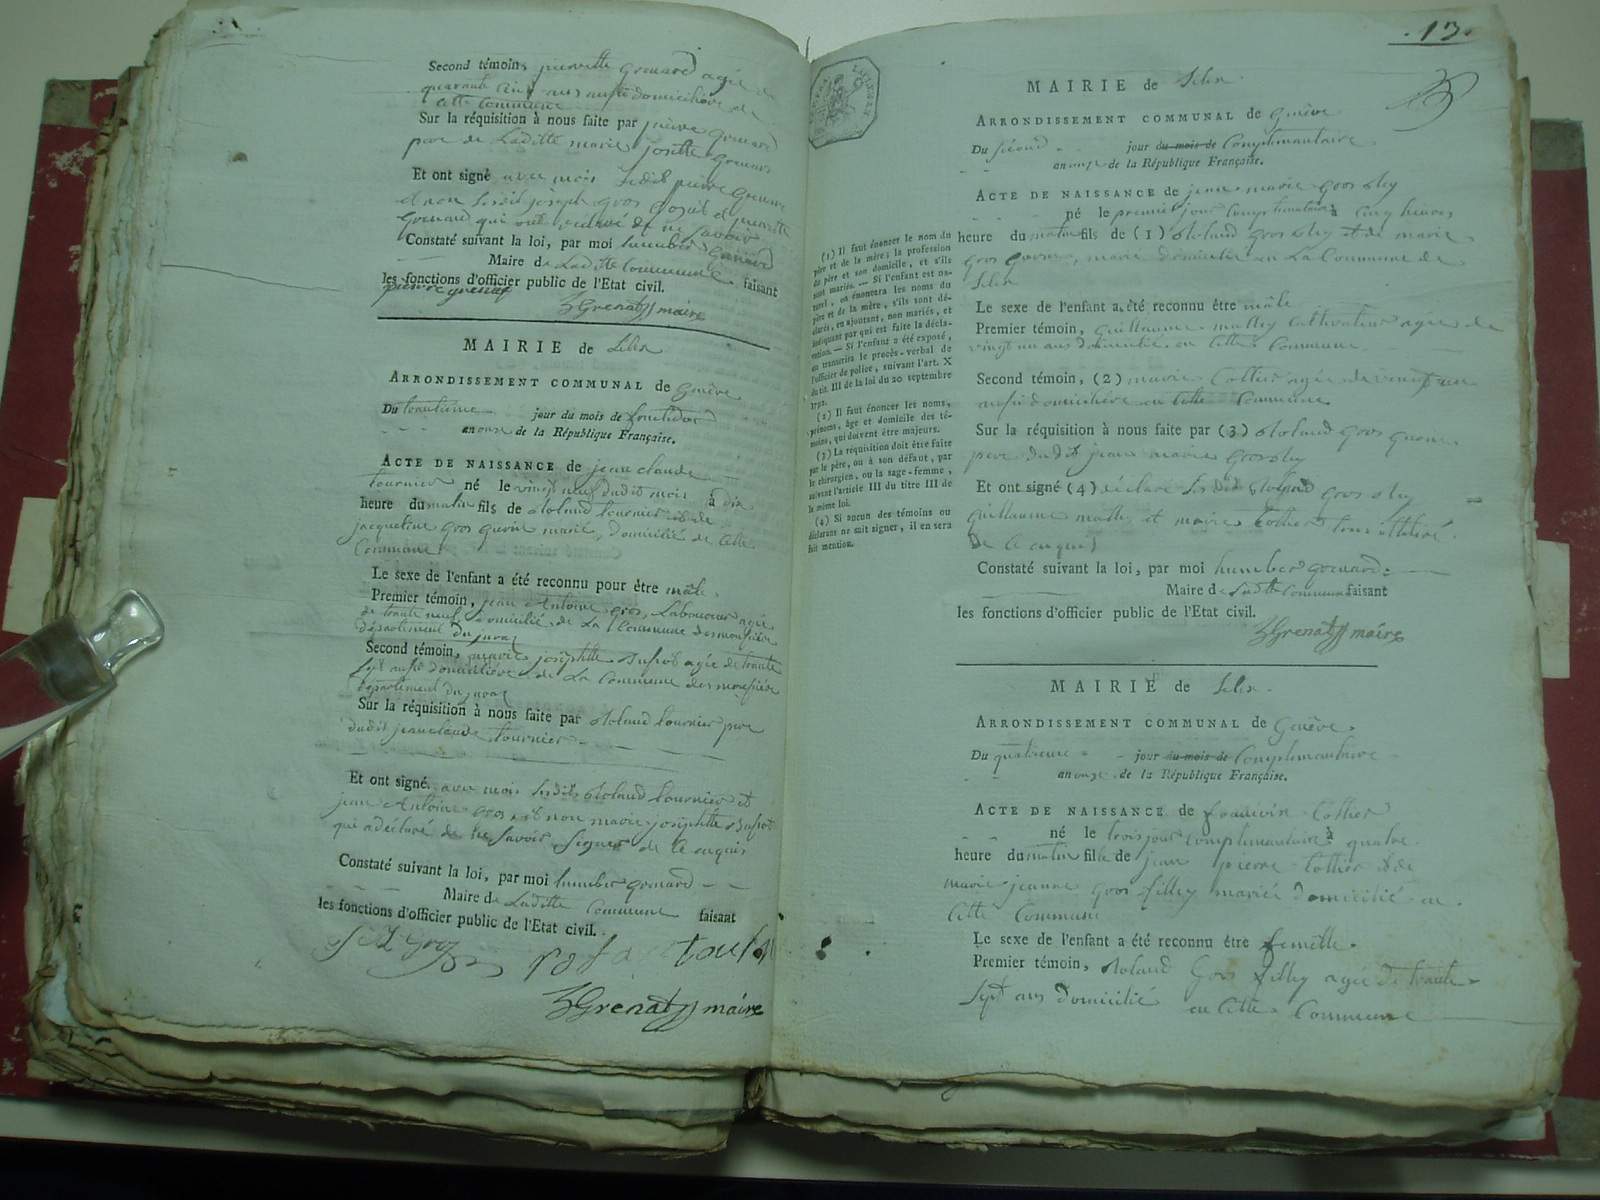 Second témoin, pierrette grenard agée de
quarante cinq ans aussi domiciliée de
cette Commune
Sur la réquisition à nous faite par pierre grenard
père de Laditte marie josette grenard
Et ont signé avec mois ledit pierre grenard
et non
grenard qui ont déclaré de ne savoir
Constaté suivant la loi, par moi humber grenard
Maire de Laditte Commune faisant
les fonctions d'officier public de l'Etat civil.
Grenat maire
MAIRIE de Lelex
ARRONDISSEMENT COMMUNAL de Genève
Du trantieme jour du mois de fructidor
an onze de la République Française.
ACTE DE NAISSANCE de jean claude
tournier né le vingt neuf dudit mois à dix
heure du matin fils de Roland tournier et de
jacqueline gros gurin mariés, domicilié de cette
Commune
Le sexe de l'enfant a été reconnu pour être mâle.
Premier témoin, jean Antoine gros, Laboureur agée
de trante neuf domicilié de La Commune des
département du jura
Second témoin, marie josephtte agée de trante
sept aussi domiciliée de La Commune des
département du jura
Sur la réquisition à nous faite par Roland tournier père
dudit jean claude tournier
Et ont signé avec mois lesdits Roland tournier et
jean Antoine gros, et non marie josephtte
qui a déclaré de ne savoir signer de ce enquis
Constaté suivant la loi, par moi humber grenard
Maire de Laditte Commune faisant
les fonctions d'officier public de l'Etat civil.
Grenat maire
13
MAIRIE de Lelex
ARRONDISSEMENT COMMUNAL de Genève
Du second jour du mois de Complimantaire
an onze de la République Française.
ACTE DE NAISSANCE de jean marie gros
né le premier jour Complimantaire à cinq heures
heure du matin fils de (1) Roland gros et de marie
gros gurin, mariés domicilié en La Commune de
Lelex
Le sexe de l'enfant a été reconnu être mâle
Premier témoin, guillaume Cultivateur agée de
vingt un ans domicilié en Cette Commune
Second témoin, (2) marie Cottier agée de vingt un
aussi domiciliée en Cette Commune
Sur la réquisition à nous faite par (3) Roland gros
père dudit jean marie gros
Et ont signé (4) déclaré lesdit Roland gros
guillaume et marie Cottier
de ce enquis
Constaté suivant la loi, par moi humber grenard
Maire de Ladtte Commune faisant
les fonctions d'officier public de l'Etat civil.
Grenat maire
(1) Il faut énoncer le nom du
père et de la mère; la profession
du père et son domicile, et s'ils
sont mariés. — Si l'enfant est na-
turel, on énoncera les noms du
père et de la mère, s'ils sont dé-
clarés, en ajoutant, non mariés, et
indiquant par qui est faite la décla-
ration. — Si l'enfant a été exposé,
on transcrira le procès-verbal de
l'officier de police, suivant l'art. X
du tit. III de la loi du 20 septembre
1792.
(2) Il faut énoncer les noms,
prénoms, âge et domicile des té-
moins, qui doivent être majeurs.
(3) La réquisition doit être faite
par le père, ou à son défaut, par
le chirurgien, ou la sage-femme,
suivant l'article III du titre III de
la même loi.
(4) Si aucun des témoins ou
déclarans ne sait signer, il en sera
fait mention.
MAIRIE de Lelex
ARRONDISSEMENT COMMUNAL de Genève
Du quatrieme jour du mois de Complimantaire
an onze de la République Française.
ACTE DE NAISSANCE de Cottier
né le trois jour Complimantaire à quatre
heure du matin fille de jean pierre Cottier et de
marie jeanne gros filley mariés domicilié en
Cette Commune
Le sexe de l'enfant a été reconnu être femelle.
Premier témoin, Roland gros filley agée de trante
sept ans domicilié en Cette Commune